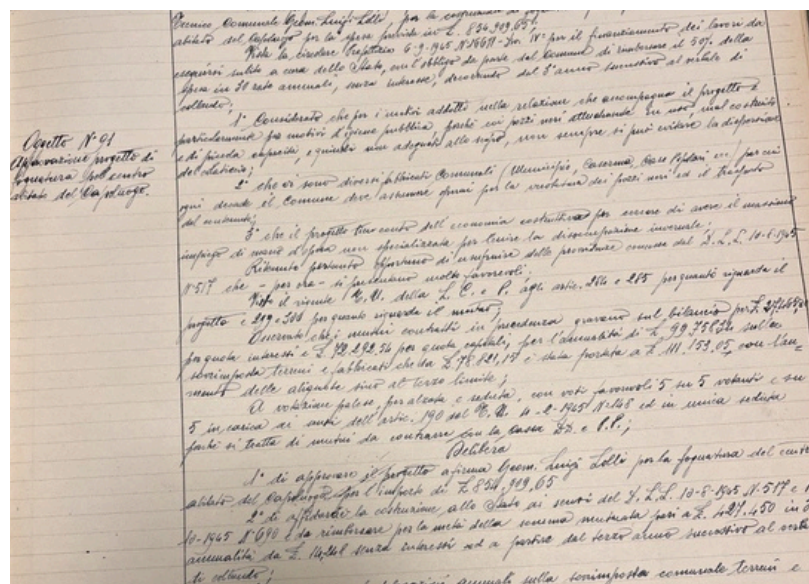 Tecnico Comunale Geom. Luigi Lolli, per la costruzione di
abitato del Capoluogo per la spesa prevista in L. 854.909,65;
Vista la circolare Prefettizia 6-9-945 N° 16611 - Div. IV° per il finanziamento dei lavori da
eseguirsi subito a cura dello Stato, con l'obbligo da parte del Comune di rimborsare il 50% della
spesa in 30 rate annuali, senza interesse, decorrendo dal 3° anno successivo al verbale di
collaudo;
1° Considerato che per i motivi addotti nella relazione che accompagna il progetto e
particolarmente per motivi d'igiene pubblica, poichè coi pozzi neri attualmente in uso, mal costruiti
e di piccola capacità, e quindi non adeguati allo scopo, non sempre si può evitare la dispersione
del colaticcio;
2° che vi sono diversi fabbricati Comunali (Municipio, Caserma, Case Popolari ecc.) per cui
ogni decade il Comune deve assumere operai per la vuotatura dei pozzi neri ed il trasporto
del contenuto;
3° che il progetto tien conto dell'economia costruttiva per cercare di avere il massimo
impiego di mano d'opera non specializzata per lenire la disoccupazione invernale;
Ritenuto pertanto opportuno di usufruire delle provvidenze concesse dal D.L.L. 10-8-1945
N° 517 che - per ora - si presentano molto favorevoli;
Visto il vigente T.U. della L.C. e P. agli artic. 284 e 285 per quanto riguarda il
progetto e 299 e 300 per quanto riguarda il mutuo;
Osservato che i mutui contratti in precedenza gravano sul bilancio per L.
per quota interessi e L. 72.292,54 per quota capitali, per l'annualità di L. 99.758,34 sulla
sovrimposta terreni e fabbricati che da L. 78.821,15 è stata portata a L. 111.153,05 con l'au=
mento delle aliquote sino al terzo limite;
A votazione palese, per alzata e seduta, con voti favorevoli 5 su 5 votanti e su
5 in carica ai sensi dell'artic. 190 del T.U. 4-2-1915 N. 148 ed in unica seduta
poichè si tratta di mutui da contrarre con la Cassa DD. e P.P.;
Delibera
1° di approvare il progetto a firma Geom. Luigi Lolli per la fognatura del centro
abitato del Capoluogo per l'importo di L. 854.909,65
2° di affidare la costruzione allo Stato ai sensi del D.L.L. 10-8-1945 N. 517 e
10-1945 N° 690 e da rimborsare per la metà della somma mutuata pari a L. 427.450 in
annualità da L. 14.248 senza interessi ed a partire dal terzo anno successivo al verbale
di collaudo;
annuali sulla sovrimposta comunale terreni e
Oggetto N° 91
Approvazione progetto di
fognatura pel centro
abitato del Capoluogo.